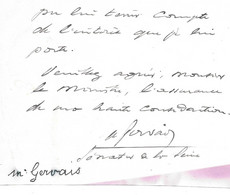 pu lui tenir compte
de l'intérêt que je lui
porte.
Veuillez agréer, Monsieur
le Ministre, l'assurance
de ma haute considération.
A Gervais
Sénateur de la Seine
Mr Gervais